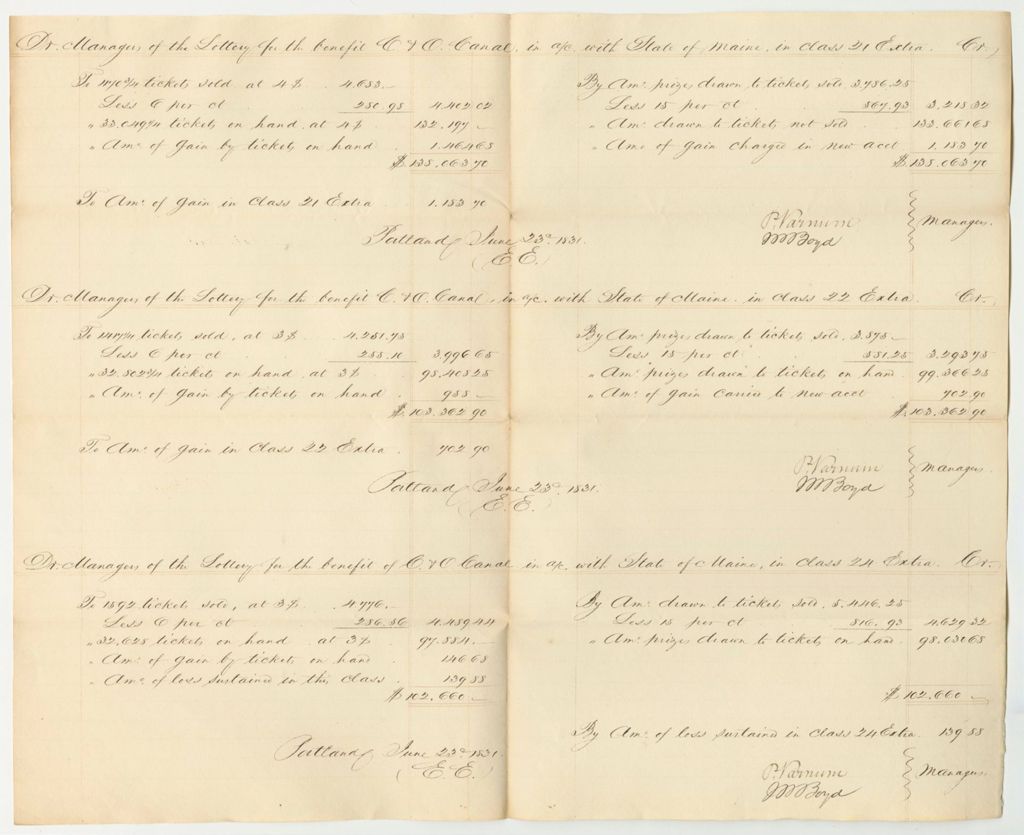 Dr. Managers of the Lottery for the benefit C & O. Canal, in a/c. with State of Maine, in class 21 Extra. Cr.
To 1170 3/4 tickets sold at 4$. 4.683.— By Amt. prizes drawn to tickets sold 3.786.25
Less 6 per ct 280.98 4.402 02 Less 15 per ct 567.93 3.218 32
" 33.049 1/4 tickets on hand at 4$ 132.197 — " Amt. drawn to tickets not sold 133.661 68
" Amt. of gain by tickets on hand 1.464 68 " Amt. of gain charged in new acct 1.183 70
$138.063 70 $138.063 70
To Amt. of gain in Class 21 Extra 1.183 70
P. Varnum
Portland June 23d. 1831. Managers.
(E.E.) WBoyd
Dr. Managers of the Lottery for the benefit C. & O. Canal, in a/c. with State of Maine in class 22 Extra. Cr.
To 1417 1/4 tickets sold, at 3$. 4.251.75 By Amt. prizes drawn to tickets sold, 3.875.—
Less 6 per ct 255.10 3.996 65 Less 15 per ct 581.25 3.293 75
" 32.802 3/4 tickets on hand at 3$ 98.408 25 " Amt. prizes drawn to tickets on hand 99.366 25
" Amt. of gain by tickets on hand 958 — " Amt. of gain carried to new acct 702 90
$103.362 90 $103.362 90
To Amt. of gain in Class 22 Extra 702 90
P. Varnum
Portland June 23d. 1831. Managers.
(E.E.) WBoyd
Dr. Managers of the Lottery for the benefit of C. & O Canal in a/c. with State of Maine, in class 24 Extra. Cr.
To 1592 tickets sold, at 3$. 4.776.— By Amt. drawn to tickets sold, 5.446.25
Less 6 per ct 286.56 4.489 44 Less 15 per ct 816.93 4.629 32
" 32.628 tickets on hand at 3$ 97.884.— " Amt. prizes drawn to tickets on hand 98.030 68
" Amt. of gain by tickets on hand 146 68
" Amt. of loss sustained in this class 139 88
$102.660 — $102.660 —
By Amt. of loss sustained in class 24 Extra. 139 88
Portland June 23d 1831.
(E.E.) P. Varnum
WBoyd Managers.